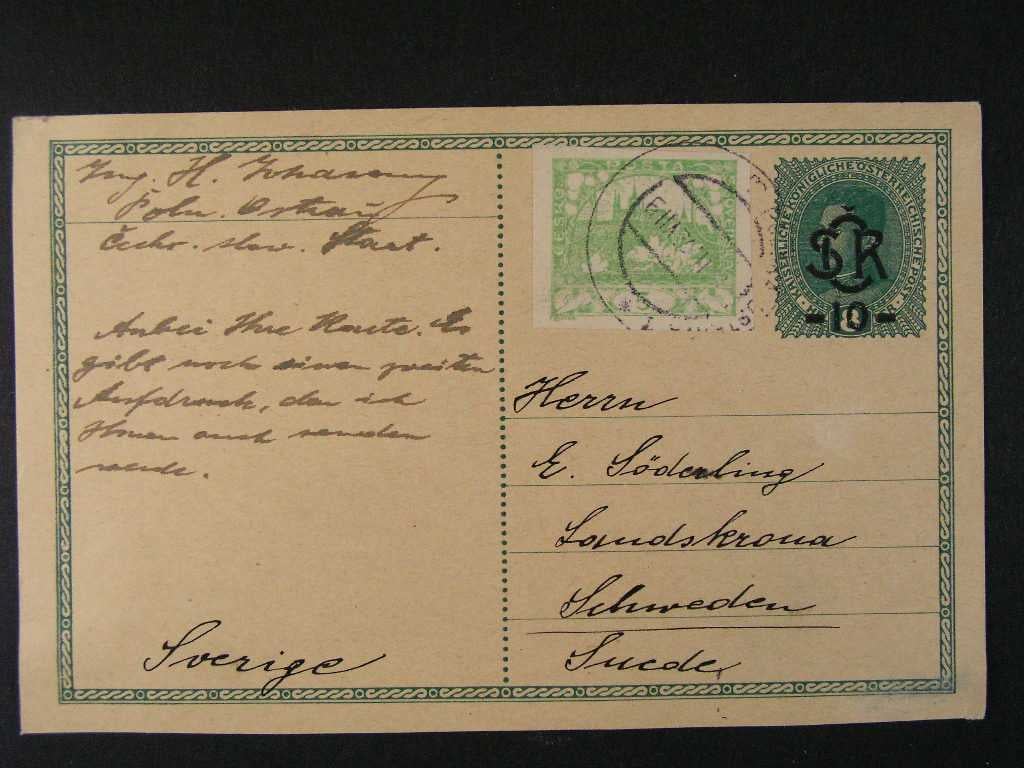 Ing. H. Johanny
Poln. Ostrau
Čecho. slow. Staat.
Anbei Ihre Karte. Es
gibt noch einen zweiten
Aufdruck, den ich
Ihnen auch senden
werde.
Sverige
POŠTA
KAISERLICHE KÖNIGLICHE ÖSTERREICHISCHE POST
ČSR
-10-
Herrn
E. Söderling
Landskrona
Schweden
Suede